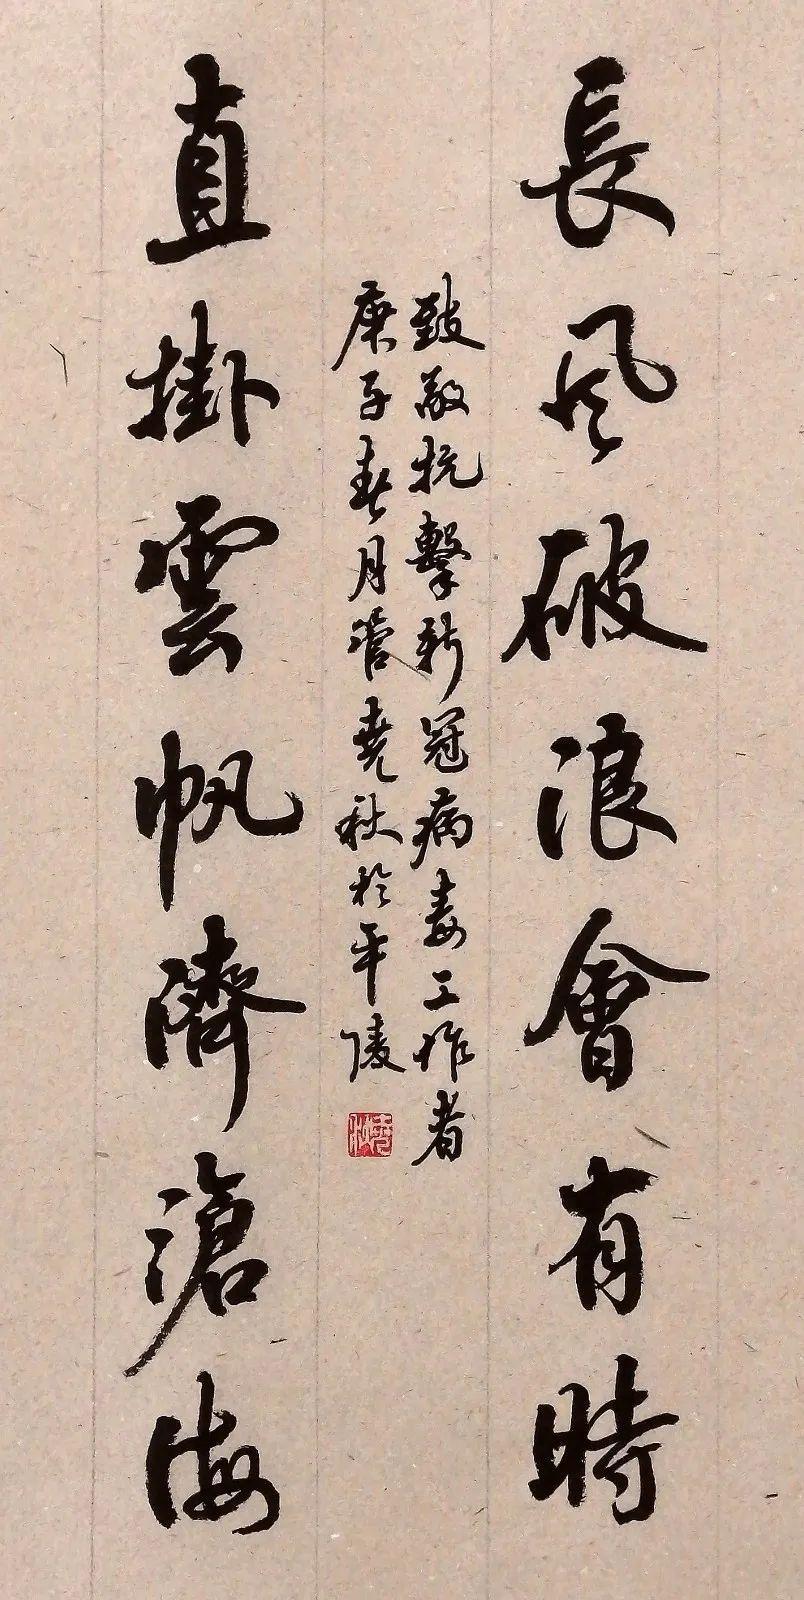 長風破浪會有時
直掛雲帆濟滄海
致敬抗擊新冠病毒工作者
庚子春月管堯秋於平陵